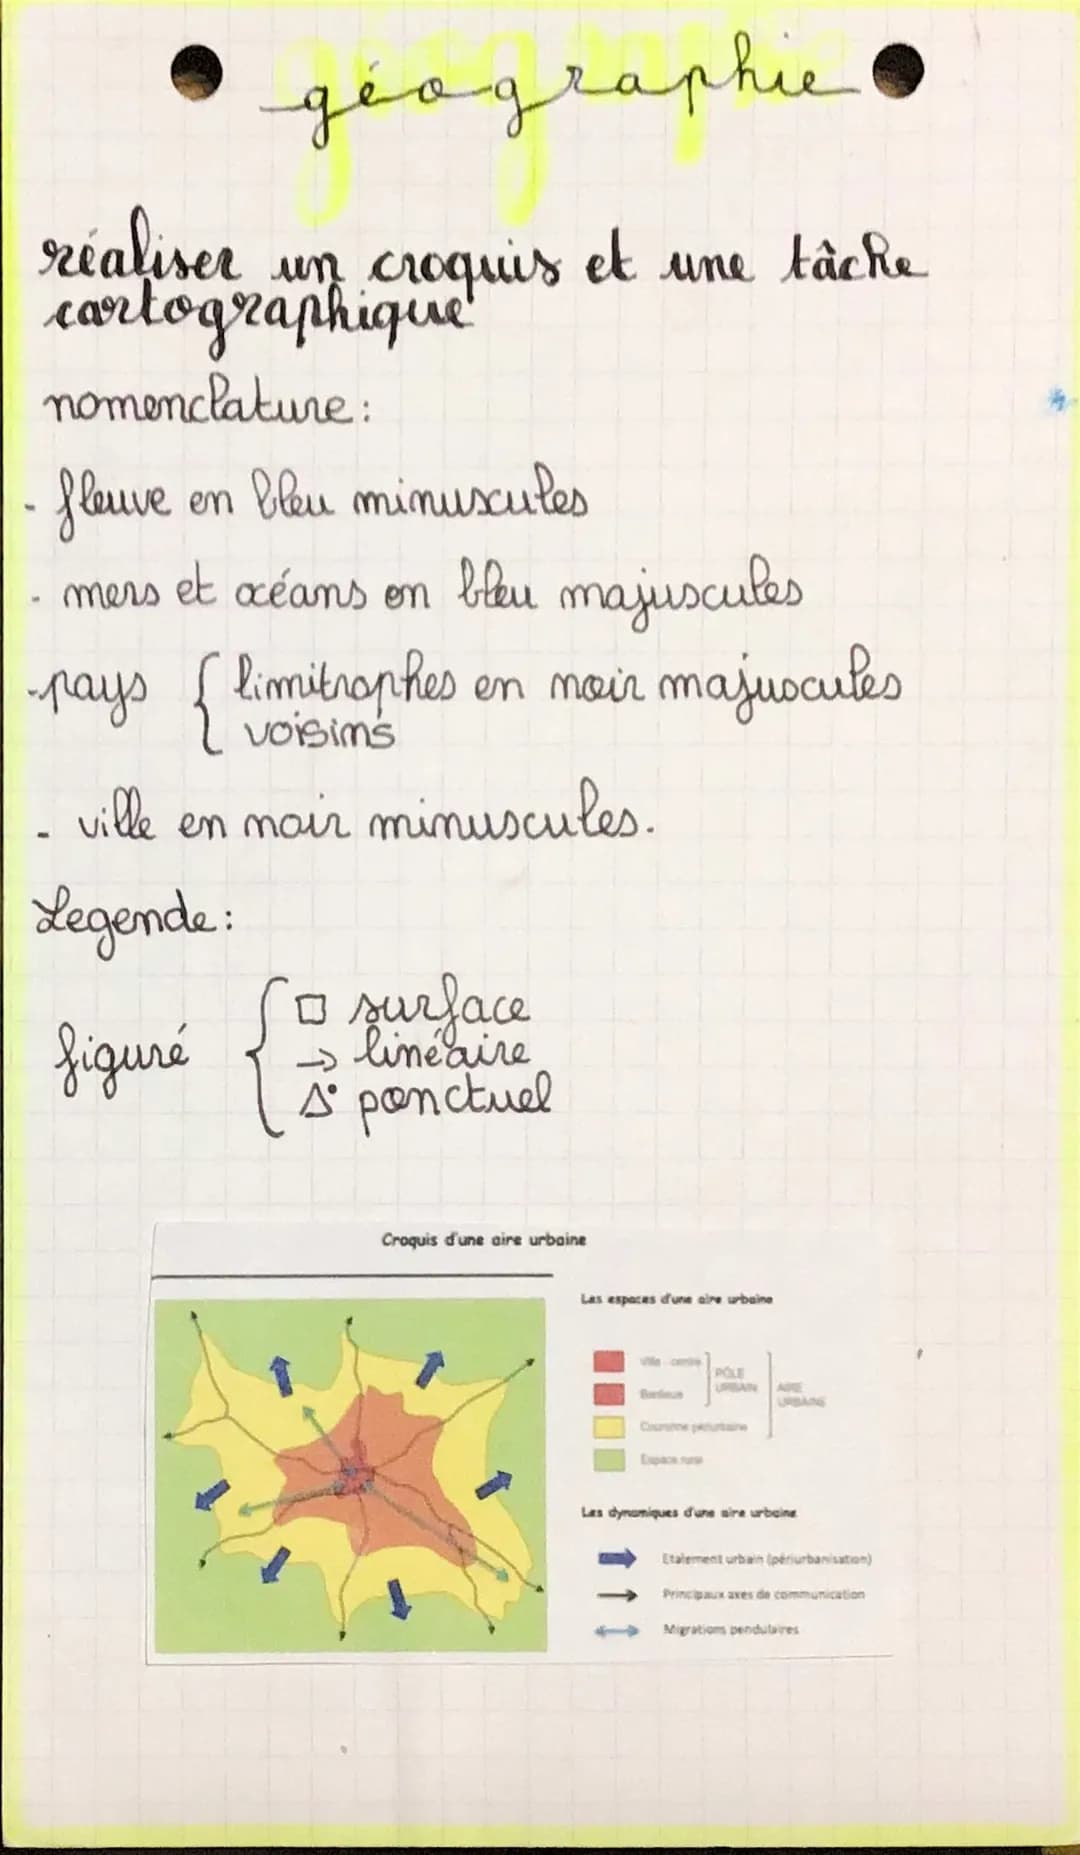 géographie
réaliser un croquis et une tâche
cartographique
nomenclature:
- fleuve en bleu minuscules
- mers et océans en bleu majuscules
- pays { limitrophes en noir majuscules
voisins
- ville en noir minuscules.
Legende:
figuré { □ surface
→ linéaire
△° ponctuel
Croquis d'une aire urbaine
Les espaces d'une aire urbaine
Ville - centre
PÔLE
URBAIN
Banlieue
AIRE
URBAINE
Couronne périurbaine
Espace rural
Les dynamiques d'une aire urbaine
Etalement urbain (périurbanisation)
Principaux axes de communication
Migrations pendulaires